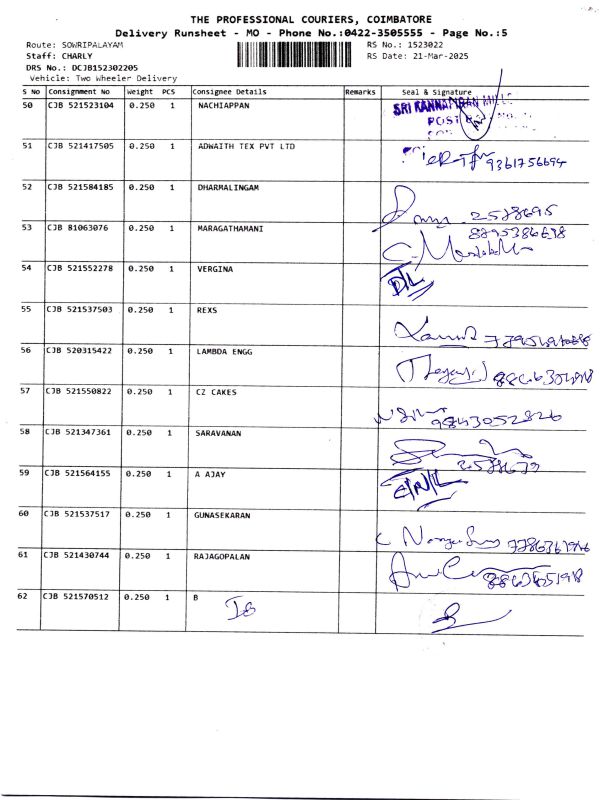 THE PROFESSIONAL COURIERS, COIMBATORE
Delivery Runsheet - MO - Phone No.:0422-3505555 - Page No.:5
Route: SOWRIPALAYAM RS No.: 1523022
Staff: CHARLY RS Date: 21-Mar-2025
DRS No.: DCJB152302205
Vehicle: Two Wheeler Delivery
S No Consignment No Weight PCS Consignee Details Remarks Seal & Signature
50 CJB 521523104 0.250 1 NACHIAPPAN
POST
51 CJB 521417505 0.250 1 ADWAITH TEX PVT LTD
9361756694
52 CJB 521584185 0.250 1 DHARMALINGAM
2578695
53 CJB 81063076 0.250 1 MARAGATHAMANI
54 CJB 521552278 0.250 1 VERGINA
55 CJB 521537503 0.250 1 REXS
56 CJB 520315422 0.250 1 LAMBDA ENGG
57 CJB 521550822 0.250 1 CZ CAKES
9843052826
58 CJB 521347361 0.250 1 SARAVANAN
59 CJB 521564155 0.250 1 A AJAY
60 CJB 521537517 0.250 1 GUNASEKARAN
61 CJB 521430744 0.250 1 RAJAGOPALAN
62 CJB 521570512 0.250 1 B